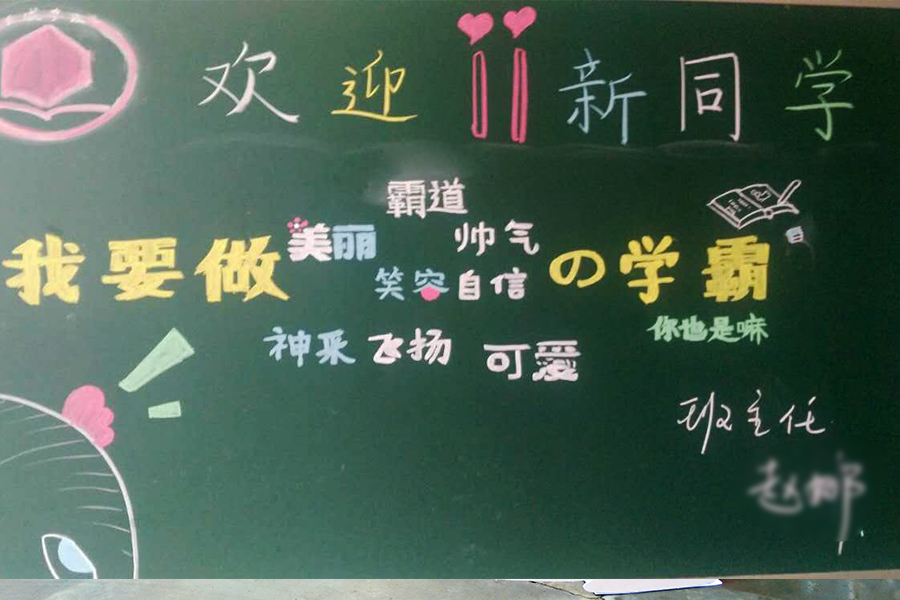 欢迎11新同学
霸道
我要做美丽帅气の学霸
笑容自信
你也是嘛
神采飞扬可爱
班主任